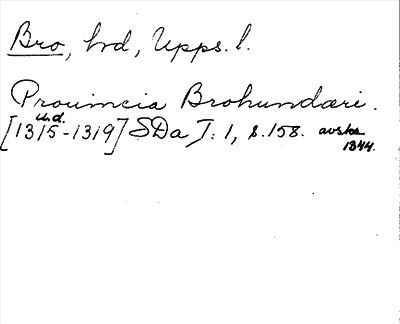 Bro, hd, Upps. l.
Prouincia Brohundæri.
u.d.
[1315-1319] SDa I: 1, s. 158. avskr.
1344.